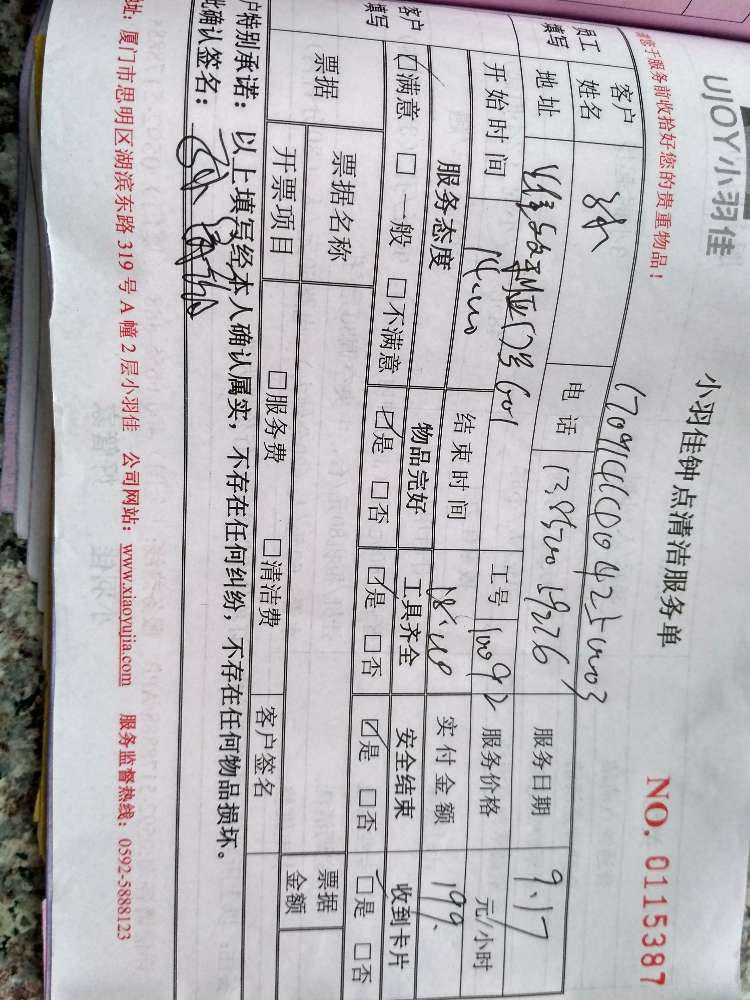 UJOY小羽佳
小羽佳钟点清洁服务单
NO. 0115387
意于服务前收拾好您的贵重物品！
员工填写
客户姓名 电话 服务日期 9.17
地址 维多利亚 601 工号 10092 服务价格 元/小时
开始时间 14:00 结束时间 18:00 实付金额 199.
客户填写
服务态度 物品完好 工具齐全 安全结束 收到卡片
☑满意 □一般 □不满意 ☑是 □否 ☑是 □否 ☑是 □否 ☑是 □否
票据 票据名称 票据金额
开票项目 □服务费 □清洁费 客户签名
户特别承诺：以上填写经本人确认属实，不存在任何纠纷，不存在任何物品损坏。
此确认签名：
址：厦门市思明区湖滨东路 319 号 A 幢 2 层小羽佳 公司网站：www.xiaoyujia.com 服务监督热线：0592-5888123